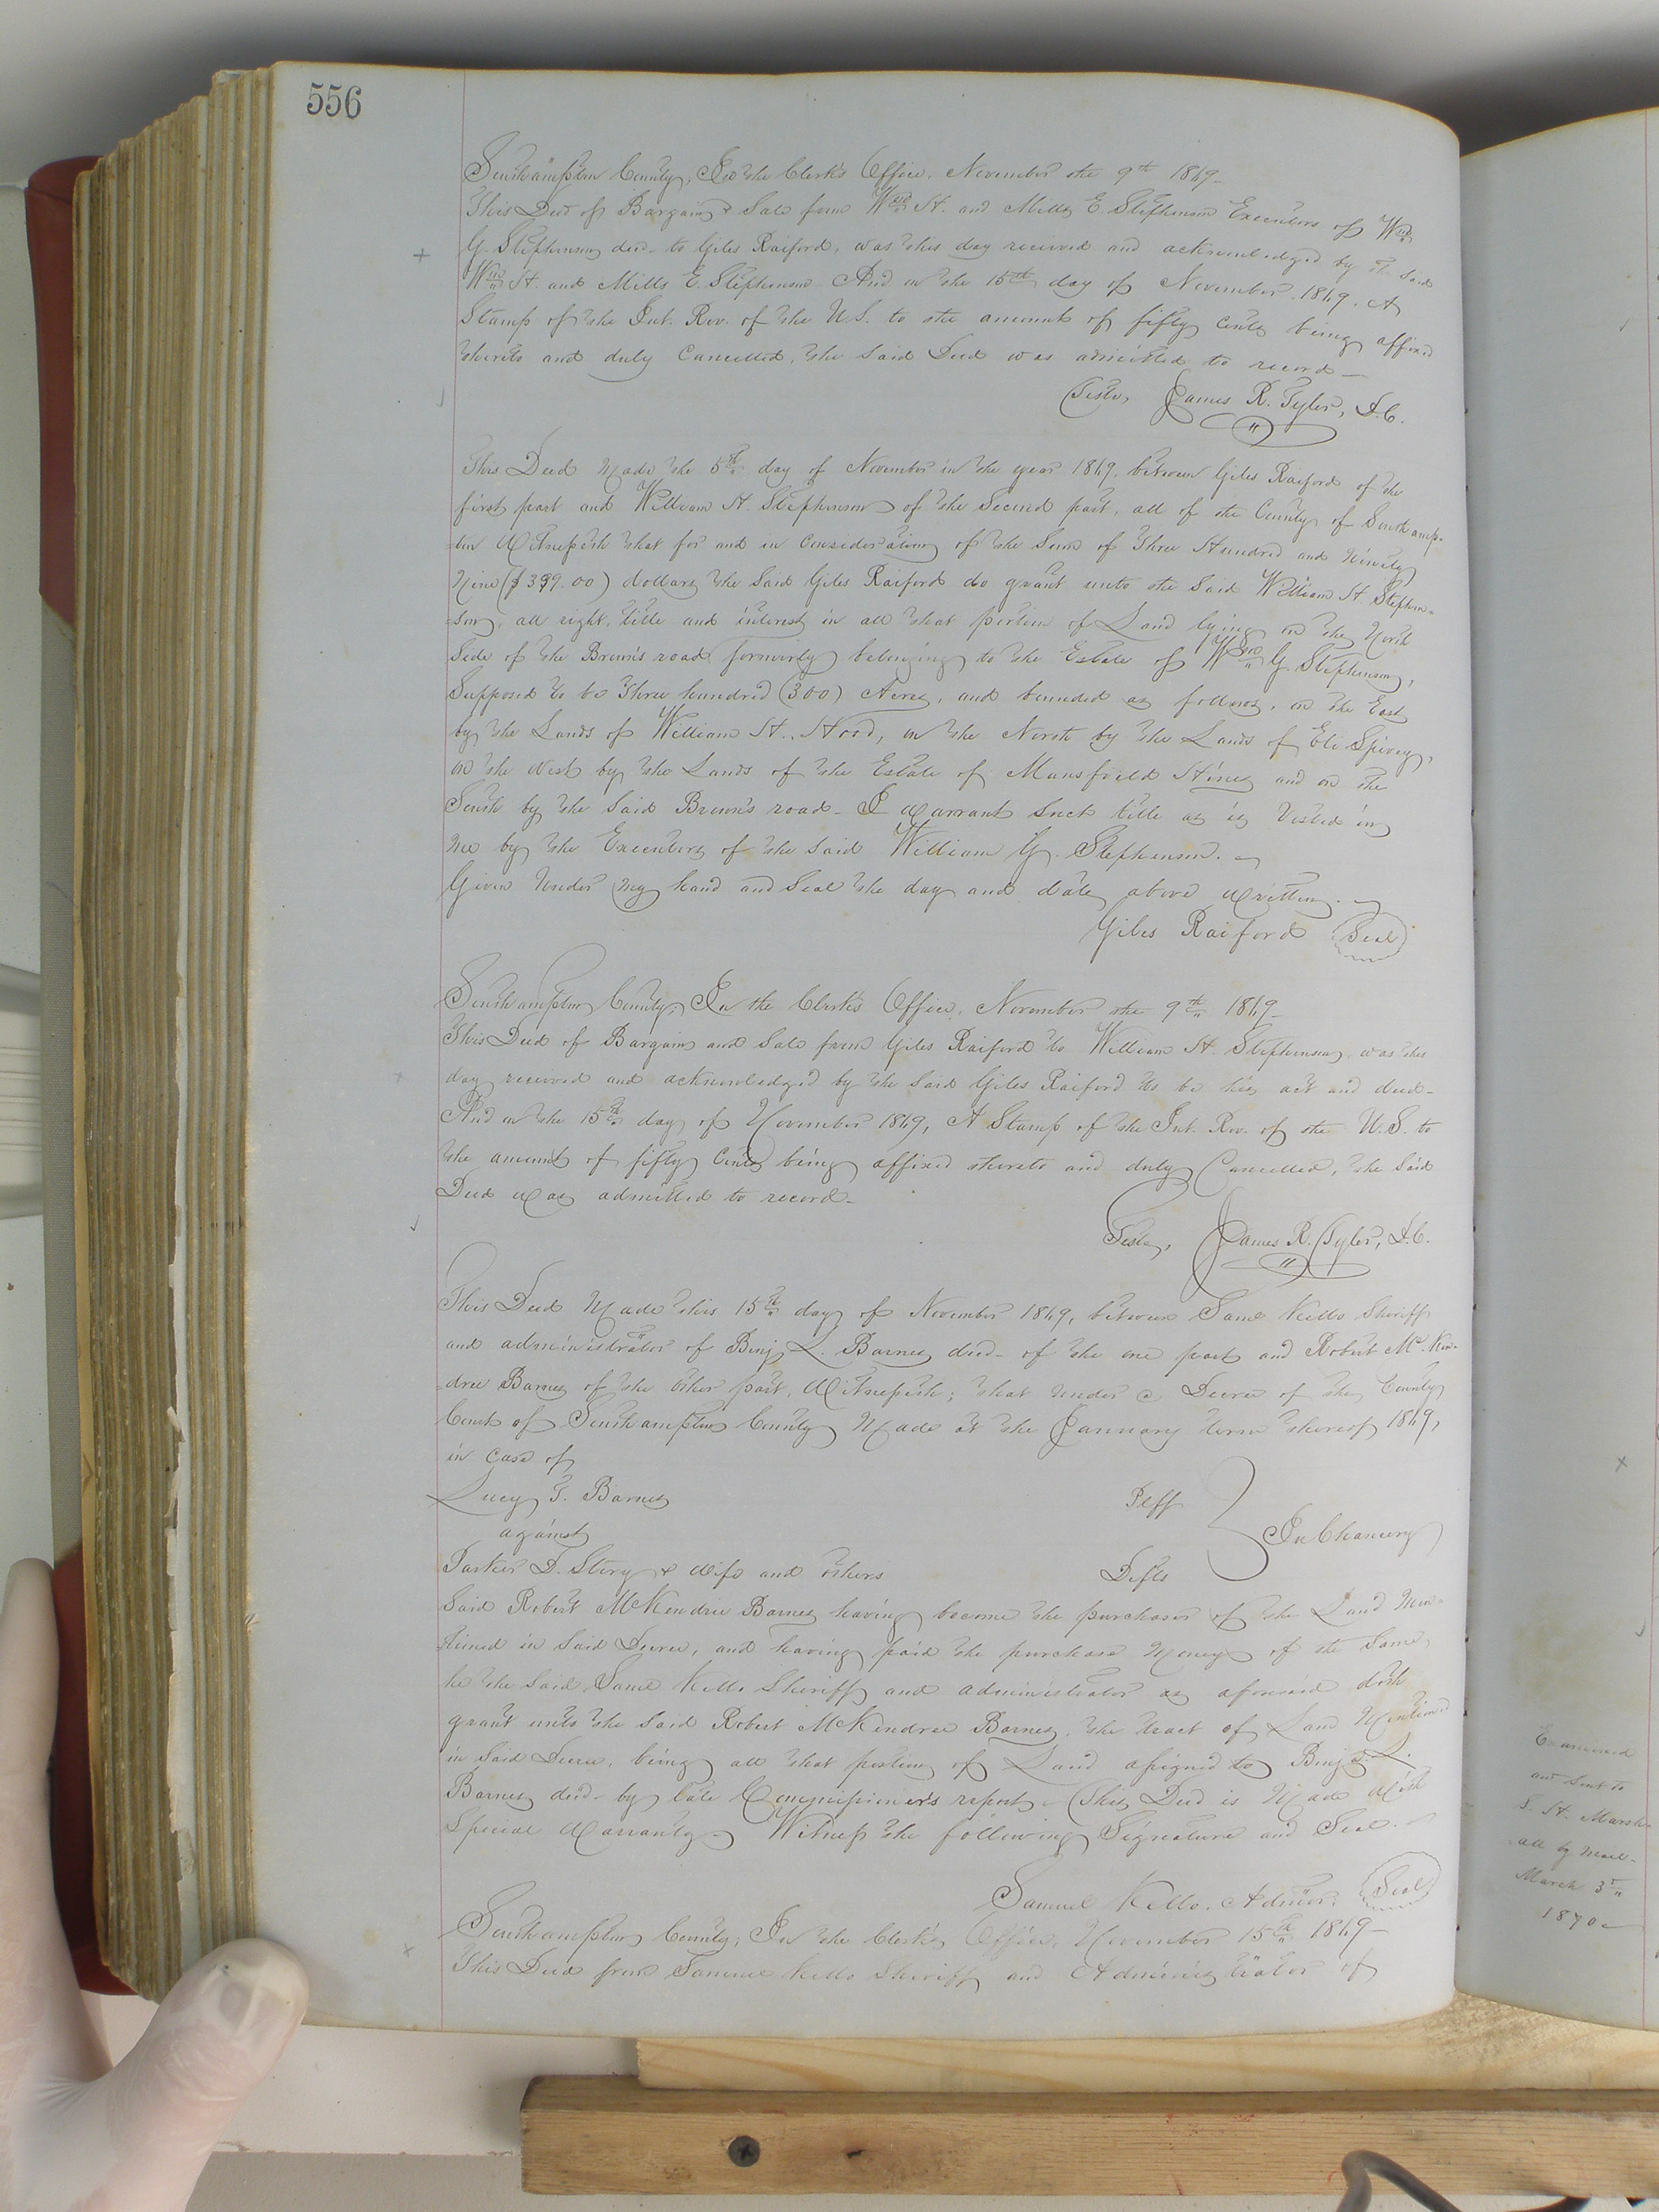 556
Southampton County, In the Clerk's Office, November the 9th 1869-
This Deed of Bargain & Sale from Wm H. and Mills E. Stephenson Executors of Wm
G. Stephenson decd. to Giles Raiford, was this day received and acknowledged by the said
Wm H. and Mills E. Stephenson And on the 15th day of November 1869. A
Stamp of the Int. Rev. of the U.S. to the amount of fifty Cents being affixed
thereto and duly Cancelled, the said Deed was admitted to record—
Teste, James R. Tyler, D.C.
This Deed Made the 5th day of November in the year 1869. between Giles Raiford of the
first part and William H. Stephenson of the Second part, all of the County of Southamp-
-ton Witnesseth that for and in consideration of the Sum of Three Hundred and Ninety
Nine ($399.00) dollars the Said Giles Raiford do grant unto the Said William H. Stephen-
-son, all right, title and interest in all that portion of Land lying on the North
Side of the Brown's road formerly belonging to the Estate of Wm G. Stephenson,
Supposed to be Three hundred (300) Acres, and bounded as follows, on the East
by the Lands of William H. Hood, on the North by the Lands of Eli Spivey,
on the West by the Lands of the Estate of Mansfield Hines and on the
South by the Said Brown's road- I Warrant such title as is Vested in
me by the Executors of the Said William G. Stephenson.
Given Under My hand and Seal the day and date above Written.
Giles Raiford Seal
Southampton County, In the Clerk's Office, November the 9th 1869-
This Deed of Bargain and Sale from Giles Raiford to William H. Stephenson, was this
day received and acknowledged by the Said Giles Raiford to be his act and deed-
And on the 15th day of November 1869, A Stamp of the Int. Rev. of the U.S. to
the amount of fifty Cents being affixed thereto and duly Cancelled, the Said
Deed was admitted to record-
Teste, James R. Tyler, D.C.
This Deed Made this 15th day of November 1869, between Saml Kello Sheriff
and administrator of Benj L. Barnes decd- of the one part and Robert Mc.Ken-
-dree Barnes of the other part, Witnesseth; that under a Decree of the County
Court of Southampton County Made at the January term thereof 1869,
in Case of
Lucy T. Barnes Plff
against In Chancery
Parker D. Story & Wife and others Defts
Said Robert McKendree Barnes having become the purchaser of the Land Men-
-tioned in Said Decree, and having paid the purchase Money of the Same,
he the Said Saml Kello Sheriff and administrator as aforesaid doth
grant unto the Said Robert McKendree Barnes, the tract of Land Mentioned
in Said Decree, being all that portion of Land assigned to Benj. L.
Barnes decd- by late Commissioner's report- This Deed is Made With
Special Warranty- Witness the following Signature and Seal.
Samuel Kello, Admor. Seal
Southampton County, In the Clerk's Office, November 15th 1869-
This Deed from Samuel Kello Sheriff and Administrator of
Examined
and Sent to
S. H. Marsh-
all by Mail-
March 3rd
1870-